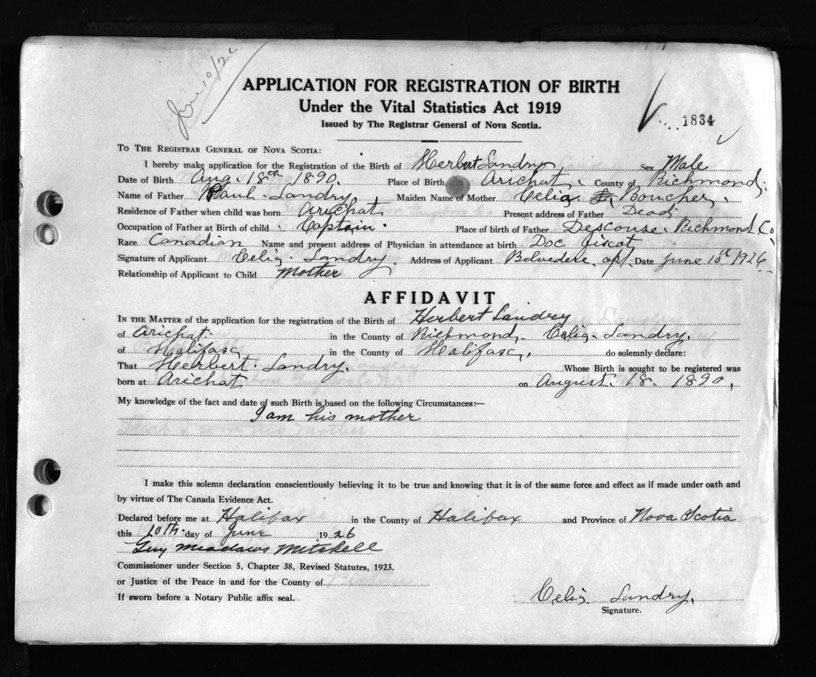 June 10/26
APPLICATION FOR REGISTRATION OF BIRTH
Under the Vital Statistics Act 1919
Issued by The Registrar General of Nova Scotia.
1834
TO THE REGISTRAR GENERAL OF NOVA SCOTIA:
I hereby make application for the Registration of the Birth of Herbert Landry Sex Male
Date of Birth Aug. 18th 1890. Place of Birth Arichat. County of Richmond.
Name of Father Paul Landry Maiden Name of Mother Celia Boucher.
Residence of Father when child was born Arichat Present address of Father Dead
Occupation of Father at Birth of child Captain Place of birth of Father Descouse Richmond Co.
Race Canadian Name and present address of Physician in attendance at birth Doc
Signature of Applicant Celia Landry. Address of Applicant Belvedere Date June 10th 1926
Relationship of Applicant to Child Mother
AFFIDAVIT
IN THE MATTER of the application for the registration of the Birth of Herbert Landry
of Arichat. in the County of Richmond. Celia Landry.
of Halifax in the County of Halifax, do solemnly declare:
That Herbert Landry. Whose Birth is sought to be registered was
born at Arichat on August. 18. 1890.
My knowledge of the fact and date of such Birth is based on the following Circumstances:—
I am his mother
I make this solemn declaration conscientiously believing it to be true and knowing that it is of the same force and effect as if made under oath and
by virtue of The Canada Evidence Act.
Declared before me at Halifax in the County of Halifax and Province of Nova Scotia
this 10th day of June 1926
Guy Meadows Mitchell
Commissioner under Section 5, Chapter 38, Revised Statutes, 1923.
or Justice of the Peace in and for the County of
If sworn before a Notary Public affix seal.
Celia Landry.
Signature.